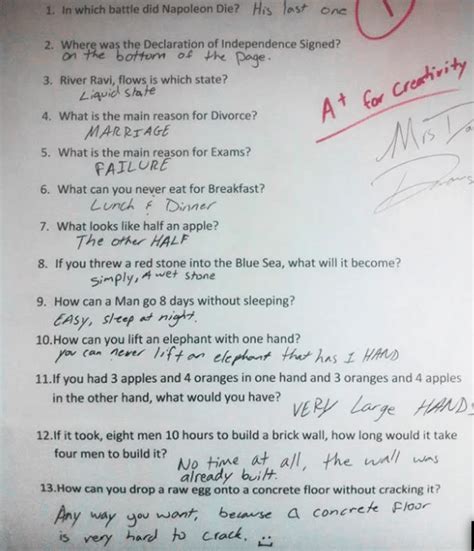 1. In which battle did Napoleon Die? His last one
2. Where was the Declaration of Independence Signed?
on the bottom of the Page.
3. River Ravi, flows is which state?
Liquid state
A+ for Creativity
4. What is the main reason for Divorce?
MARRIAGE
Mrs
5. What is the main reason for Exams?
FAILURE
6. What can you never eat for Breakfast?
Lunch & Dinner
7. What looks like half an apple?
The other HALF
8. If you threw a red stone into the Blue Sea, what will it become?
simply, A wet stone
9. How can a Man go 8 days without sleeping?
EASY, sleep at night.
10.How can you lift an elephant with one hand?
you can never lift an elephant that has 1 HAND
11.If you had 3 apples and 4 oranges in one hand and 3 oranges and 4 apples
in the other hand, what would you have?
VERY Large HANDS
12.If it took, eight men 10 hours to build a brick wall, how long would it take
four men to build it?
No time at all, the wall was
already built.
13.How can you drop a raw egg onto a concrete floor without cracking it?
Any way you want, because a concrete floor
is very hard to crack.